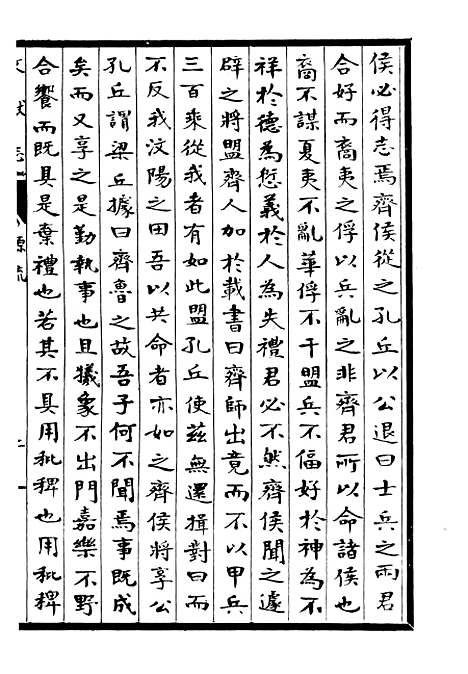 侯必得志焉齊侯從之孔丘以公退曰士兵之兩君
合好而裔夷之俘以兵亂之非齊君所以命諸侯也
裔不謀夏夷不亂華俘不干盟兵不偪好於神為不
祥於德為愆義於人為失禮君必不然齊侯聞之遽
辟之將盟齊人加於載書曰齊師出竟而不以甲兵
三百乘從我者有如此盟孔丘使茲無還揖對曰而
不反我汶陽之田吾以共命者亦如之齊侯將享公
孔丘謂梁丘據曰齊魯之故吾子何不聞焉事既成
矣而又享之是勤執事也且犧象不出門嘉樂不野
合饗而既具是棄禮也若其不具用秕稗也用秕稗
文獻志
源流